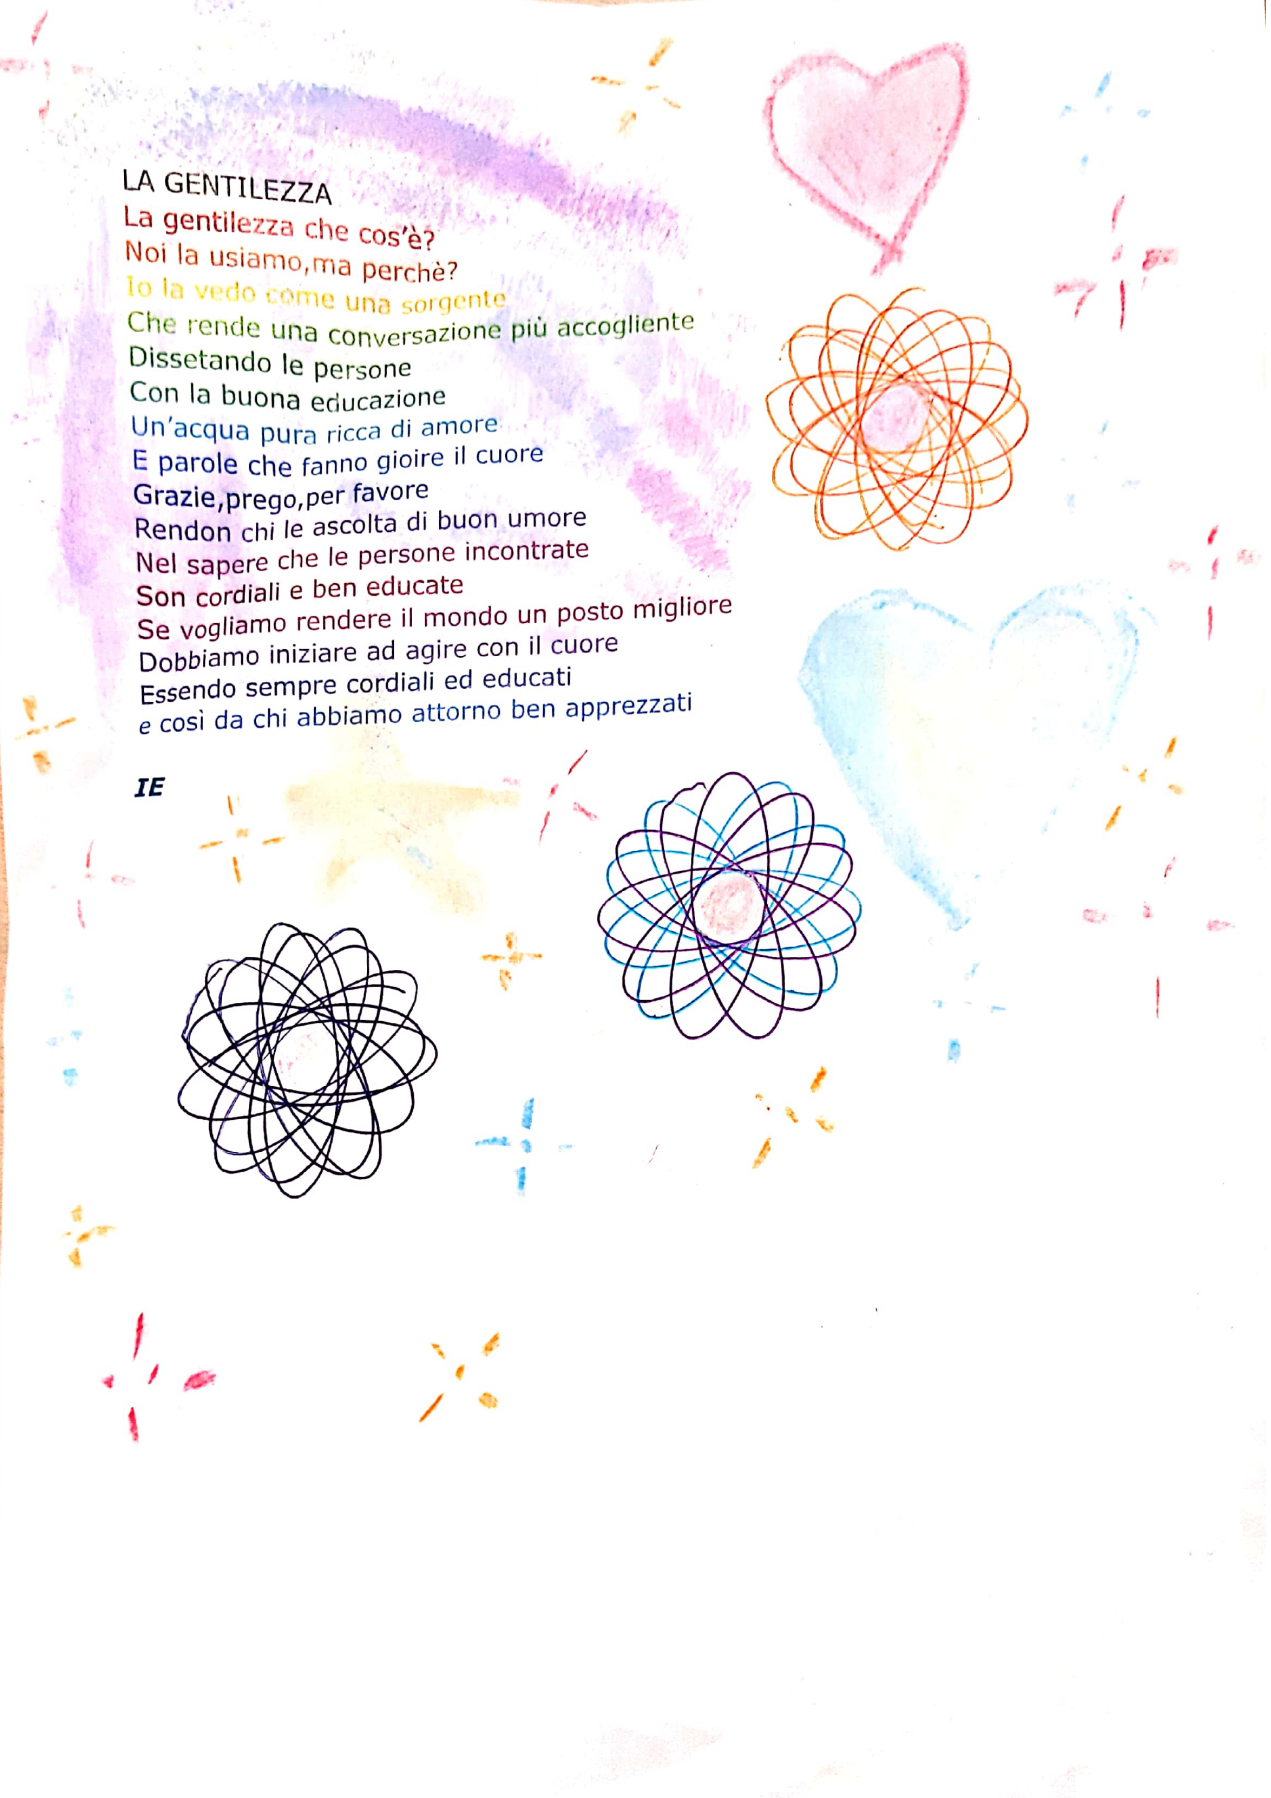 LA GENTILEZZA
La gentilezza che cos'è?
Noi la usiamo,ma perchè?
Io la vedo come una sorgente
Che rende una conversazione più accogliente
Dissetando le persone
Con la buona educazione
Un'acqua pura ricca di amore
E parole che fanno gioire il cuore
Grazie,prego,per favore
Rendon chi le ascolta di buon umore
Nel sapere che le persone incontrate
Son cordiali e ben educate
Se vogliamo rendere il mondo un posto migliore
Dobbiamo iniziare ad agire con il cuore
Essendo sempre cordiali ed educati
e così da chi abbiamo attorno ben apprezzati
IE